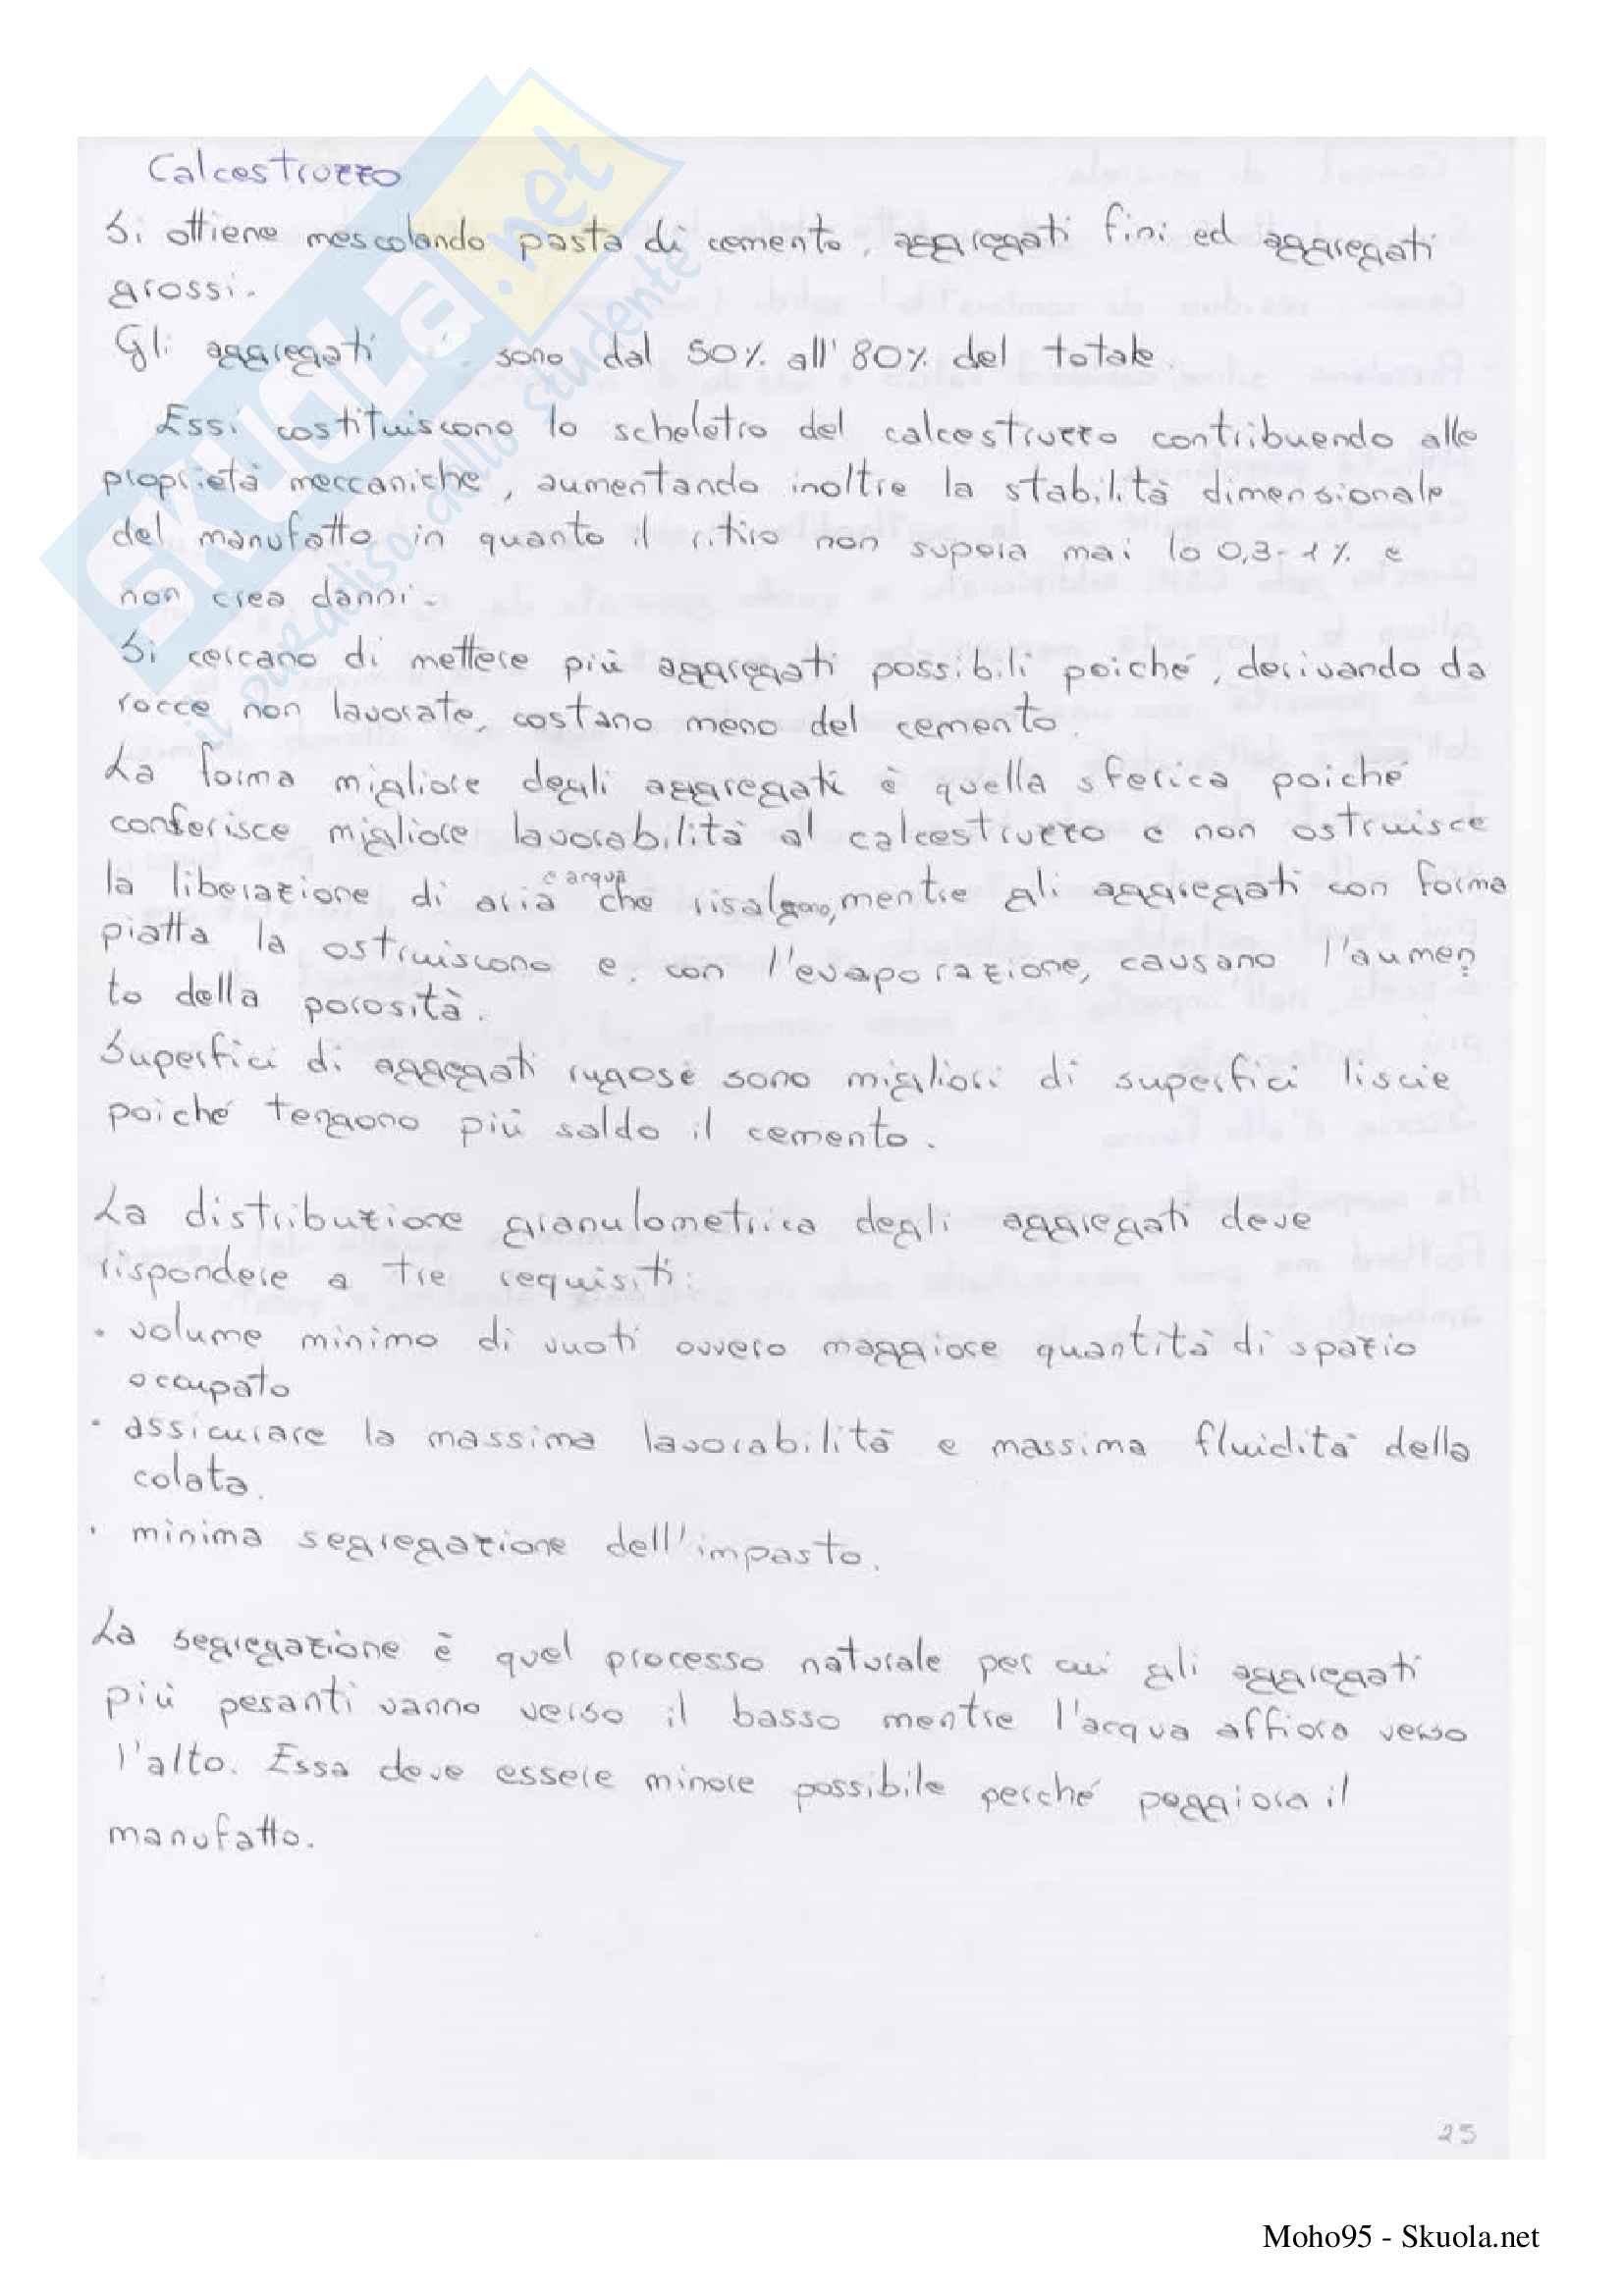 Calcestruzzo
Si ottiene mescolando pasta di cemento, aggregati fini ed aggregati
grossi.
Gli aggregati sono dal 50% all' 80% del totale.
Essi costituiscono lo scheletro del calcestruzzo contribuendo alle
proprietà meccaniche, aumentando inoltre la stabilità dimensionale
del manufatto in quanto il ritiro non supera mai lo 0,3-1% e
non crea danni.
Si cercano di mettere più aggregati possibili poiché, derivando da
rocce non lavorate, costano meno del cemento.
La forma migliore degli aggregati è quella sferica poiché
conferisce migliore lavorabilità al calcestruzzo e non ostruisce
la liberazione di aria e acqua che risalgono, mentre gli aggregati con forma
piatta la ostruiscono e, con l'evaporazione, causano l'aumen
to della porosità.
Superfici di aggregati rugose sono migliori di superfici liscie
poiché tengono più saldo il cemento.
La distribuzione granulometrica degli aggregati deve
rispondere a tre requisiti:
· volume minimo di vuoti ovvero maggiore quantità di spazio
occupato
· assicurare la massima lavorabilità e massima fluidità della
colata.
· minima segregazione dell'impasto.
La segregazione è quel processo naturale per cui gli aggregati
più pesanti vanno verso il basso mentre l'acqua affiora verso
l'alto. Essa deve essere minore possibile perché peggiora il
manufatto.
25
SKUOLA.net
il paradiso dello studente
Moho95 - Skuola.net